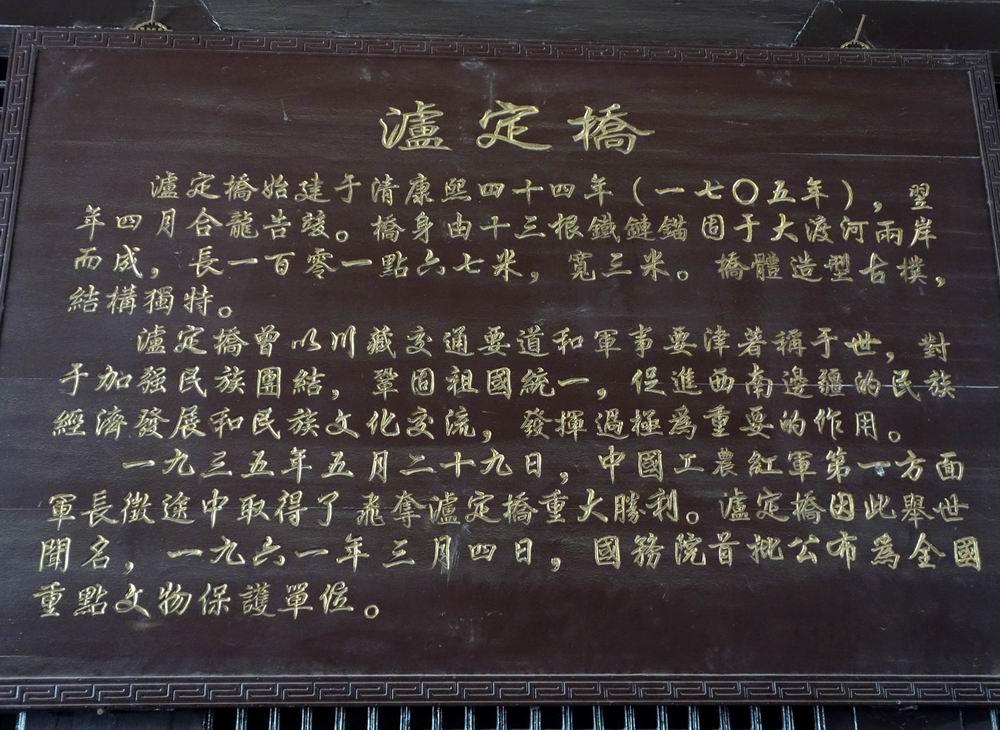 瀘定橋
瀘定橋始建于清康熙四十四年（一七〇五年），翌
年四月合龍告竣。橋身由十三根鐵鏈錨固于大渡河兩岸
而成，長一百零一點六七米，寬三米。橋體造型古樸，
結構獨特。
瀘定橋曾以川藏交通要道和軍事要津著稱于世，對
于加强民族團結，鞏固祖國統一，促進西南邊疆的民族
經濟發展和民族文化交流，發揮過極爲重要的作用。
一九三五年五月二十九日，中國工農紅軍第一方面
軍長徵途中取得了飛奪瀘定橋重大勝利。瀘定橋因此舉世
聞名，一九六一年三月四日，國務院首批公布爲全國
重點文物保護單位。